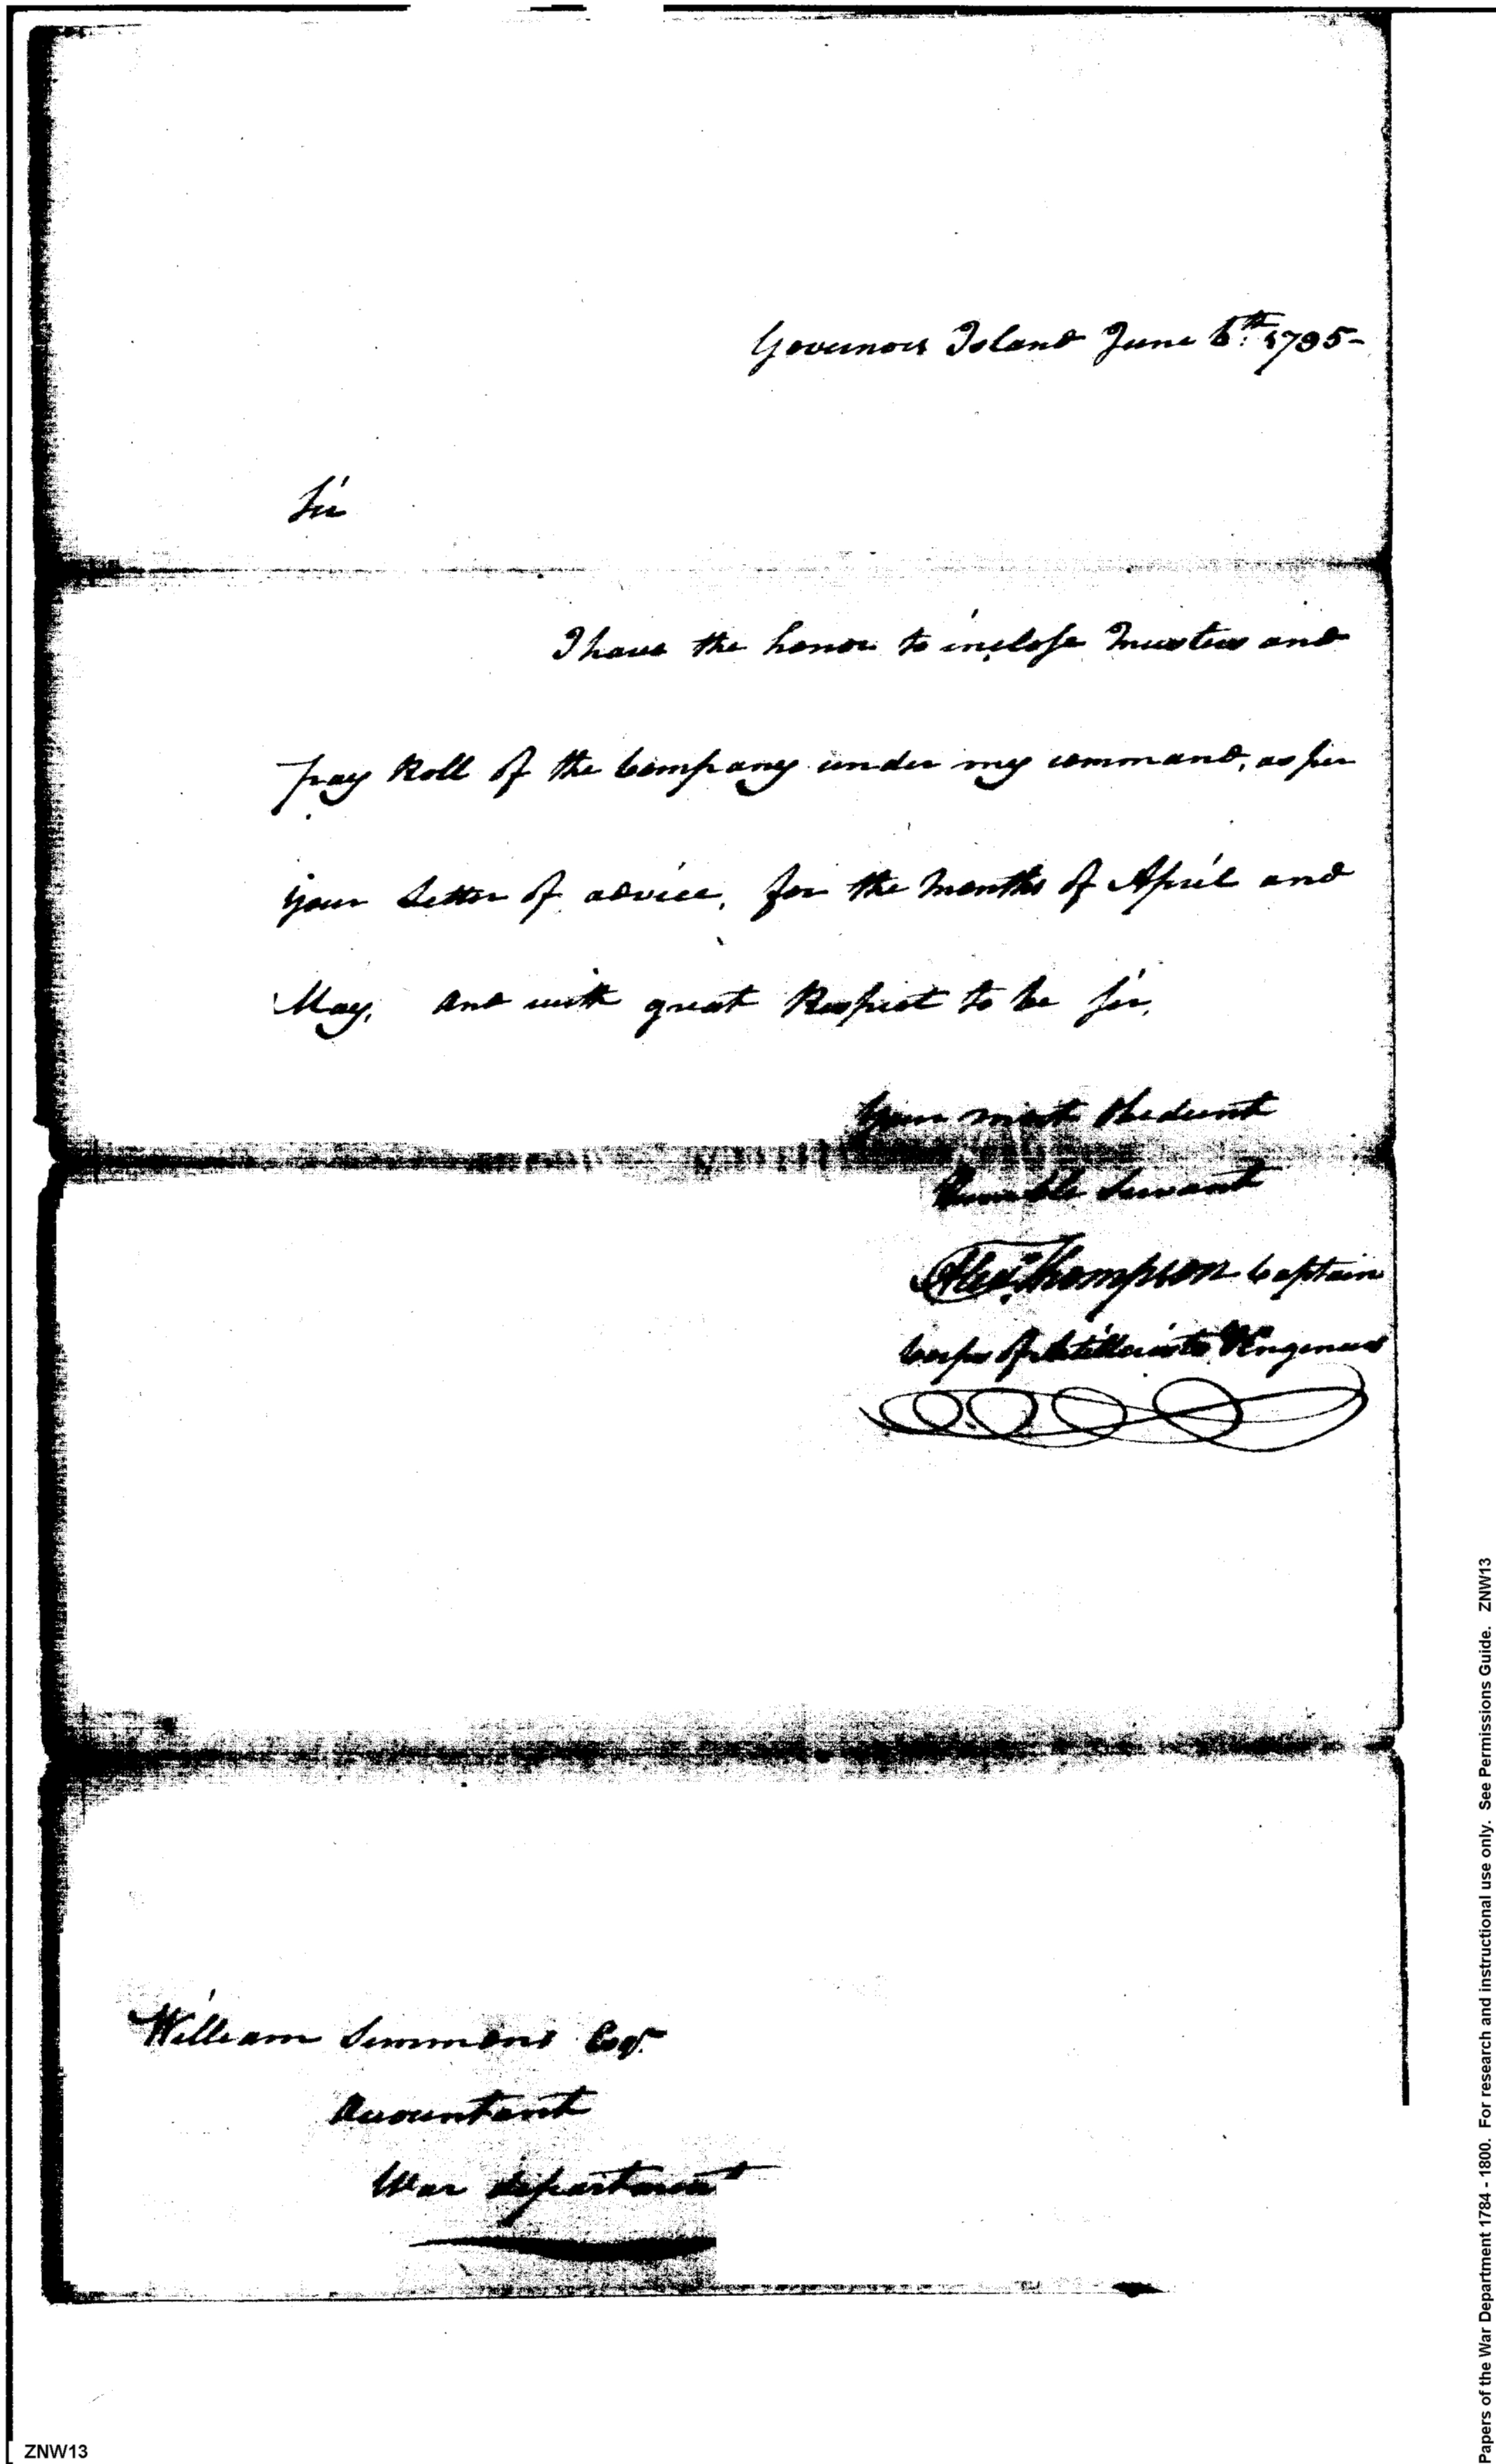 Governors Island June 6th. 1795-
Sir
I have the honor to inclose Musters and
pay Roll of the Company under my command, as per
your Letter of advice, for the Months of April and
May, and with great Respect to be Sir,
Your most Obedient
Humble Servant
Alexr. Thompson Captain
Corps of Artillerists & Engineers
William Simmons Esqr.
Accountant
War department
ZNW13
Papers of the War Department 1784 - 1800. For research and instructional use only. See Permissions Guide. ZNW13